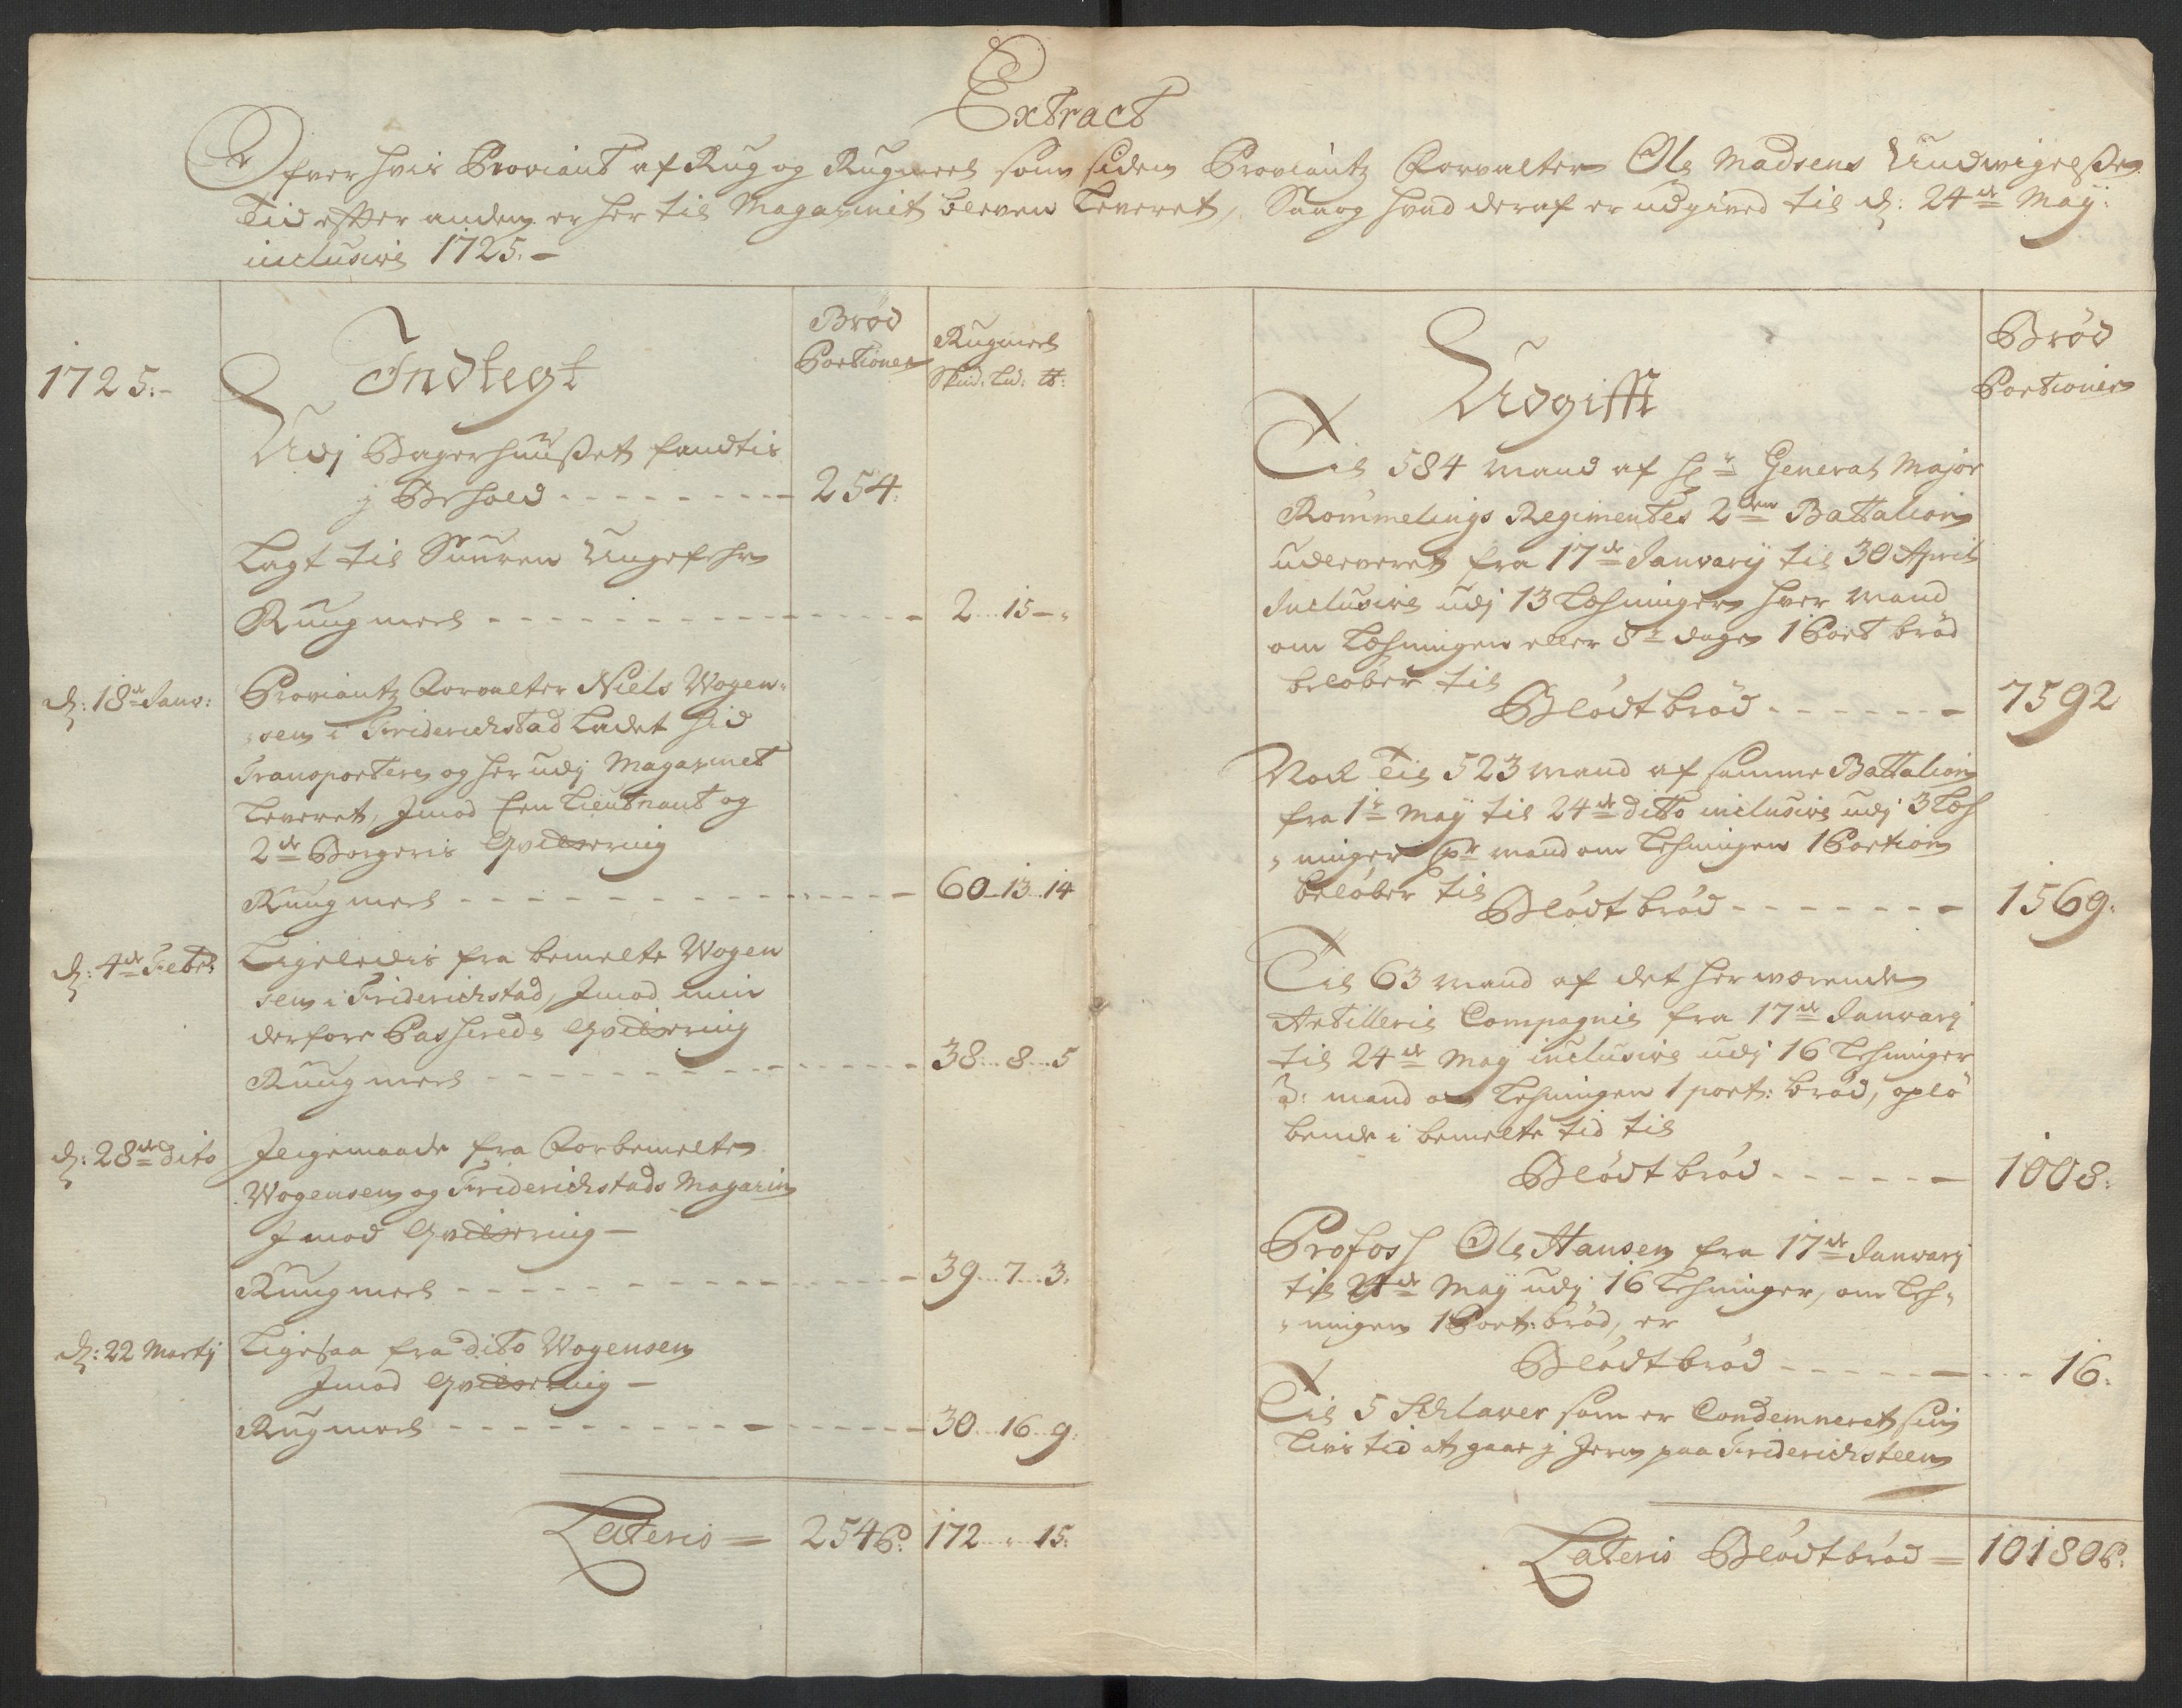 Extract
Ofver hvis Proviant af Rug og Rugmeel som siden Proviantz Forvalter Ole Madsens Undvigelse
Tid effter anden er her til Magazinet bleven Leveret, Saa og hvad deraf er udgived til d: 24de Maÿ:
inclusive 1725.-
1725.-
Indtegt
Brød
Portioner
Rugmeel
Skud: Lid: ℔:
Udj Bagerhuusset fandtis
j Behold - - - - - - - - - 254.
Lagt til Suuren Ungefehr
Ruugmeel - - - - - - - - - 2...15 -.
d: 18de Janv:
Proviantz Forvalter Niels Wogen-
sen i Friderichstad Ladet hid
Transportere og her udj Magazinet
Leveret, Imod Een Lieutnant og
2de Borgeris Qvittering
Ruugmeel - - - - - - - - - 60..13..14
d: 4de Febr:
Ligeledis fra bemelte Wogen
sen i Friderichstad, Imod min
derfore Passerede Qvittering
Ruugmeel - - - - - - - - - 38...8...5
d: 28de dito
Jligemaade fra Forbemelte
Wogensen og Friderichstads Magazin
Imod Qvittering -
Ruugmeel - - - - - - - - - 39...7...3.
d: 22 Martij
Ligesaa fra dito Wogensen
Imod Qvittering -
Rugmeel - - - - - - - - - 30...16..9.
Lateris = 254 P. 172 ... " ... 15.
Udgifft
Brød
Portioner
Til 584 mand af Hr: General Major
Rømmelings Regimentes 2den Battalion
udleveret fra 17de Janvarij til 30 April
Inclusive udj 13 Løhninger hver mand
om Løhningen eller 8te dage 1 Port brød
beløber til
Blødtbrød - - - - - - 7592
Nock Til 523 mand af samme Battalion
fra 1te Maÿ til 24de ditto inclusive udj 3 Løh
ninger pr mand om Lehningen 1 Portion
beløber til
Blødtbrød - - - - - - - 1569.
Til 63 mand af det her værende
Artillerie Compagnie fra 17de Janvarij
til 24de Maÿ inclusive udj 16 Lehninger
á: mand om Lehningen 1 port: brød, opló
bende i bemelte tid til
Blødtbrød - - - - - - 1008.
Profoss Ole Hansen fra 17de Janvarij
til 24de Maÿ udj 16 Lehninger, om Leh-
ningen 1 Port: brød, er
Blødtbrød - - - - - - - - 16.
Til 5 Schlaver som er Condemneret sin
Livs tid at gaae j Jern paa Friderichsteen
Lateris Blødtbrød = 10180 P.